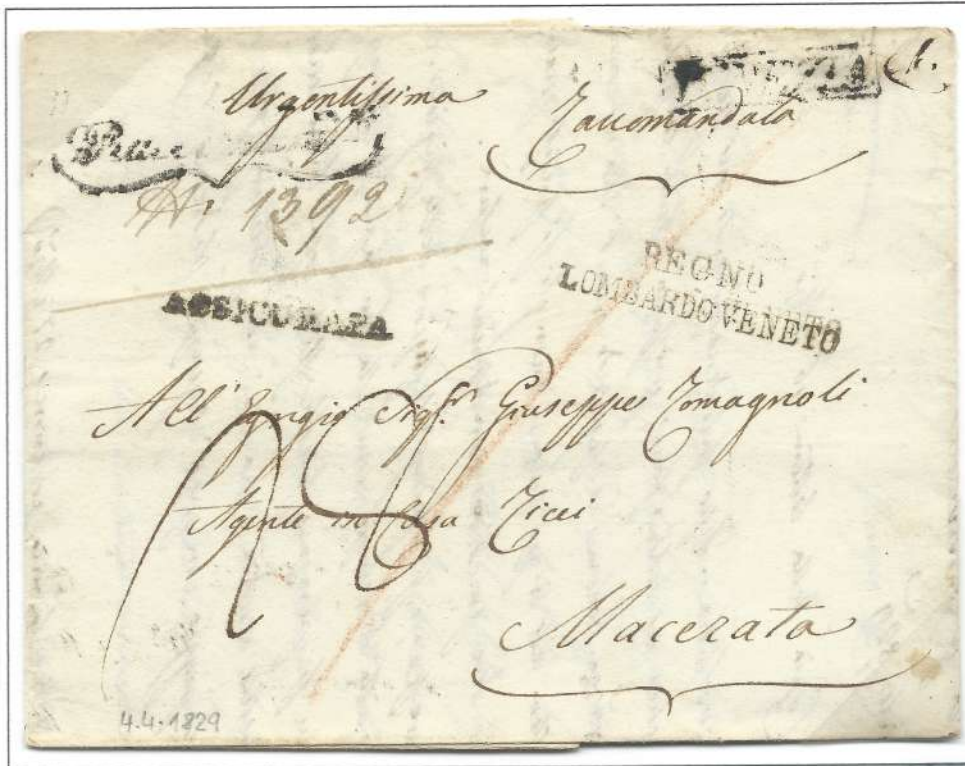 Urgentissima
Raccomandata
N. 1392
REGNO
LOMBARDO VENETO
ASSICURATA
All' Egregio Sigr. Giuseppe Romagnoli
Agente in Casa Ricci
Macerata
4.4.1829